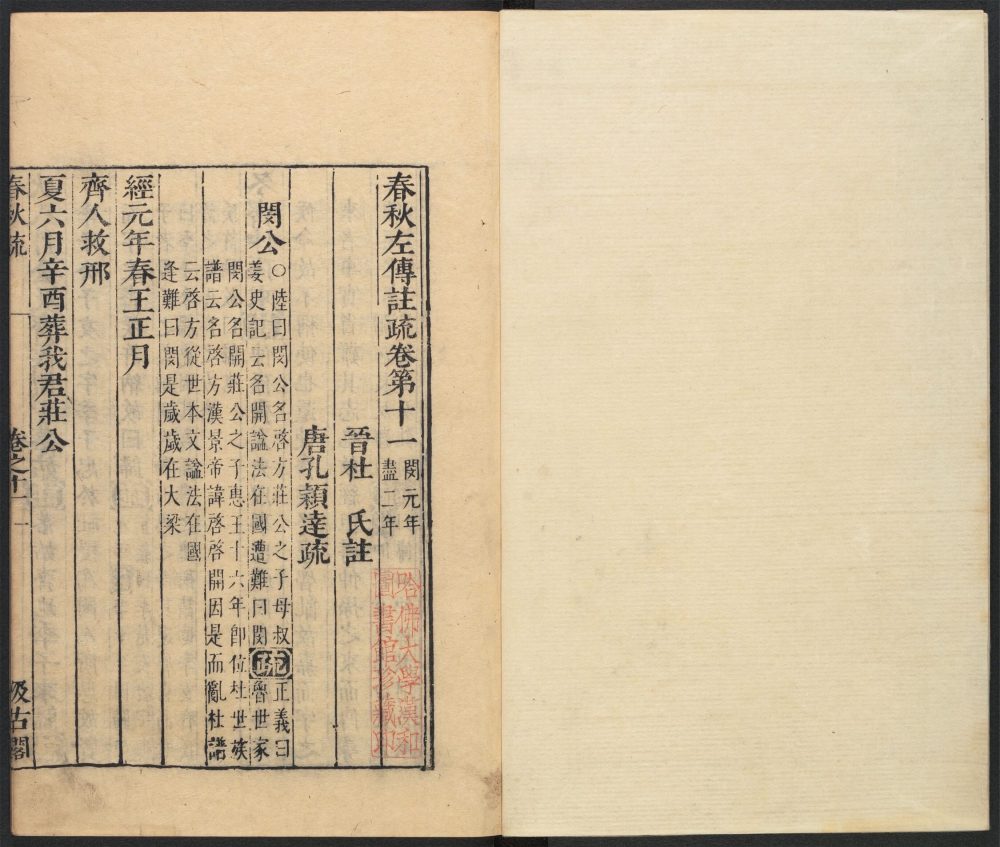 春秋左傳註疏卷第十一 閔元年
盡二年
晉杜 氏註
唐孔穎達疏
閔公 〇陸曰閔公名啓方莊公之子母叔
姜史記云名開謚法在國遭難曰閔 疏 正義曰
魯世家
閔公名開莊公之子惠王十六年卽位杜世族
譜云名啓方漢景帝諱啓啓開因是而亂杜譜
云啓方從世本文謚法在國
逢難曰閔是歲歲在大梁
經元年春王正月
齊人救邢
夏六月辛酉葬我君莊公
春秋疏 卷之十一 一 汲古閣
哈佛大學漢和
圖書館珍藏印